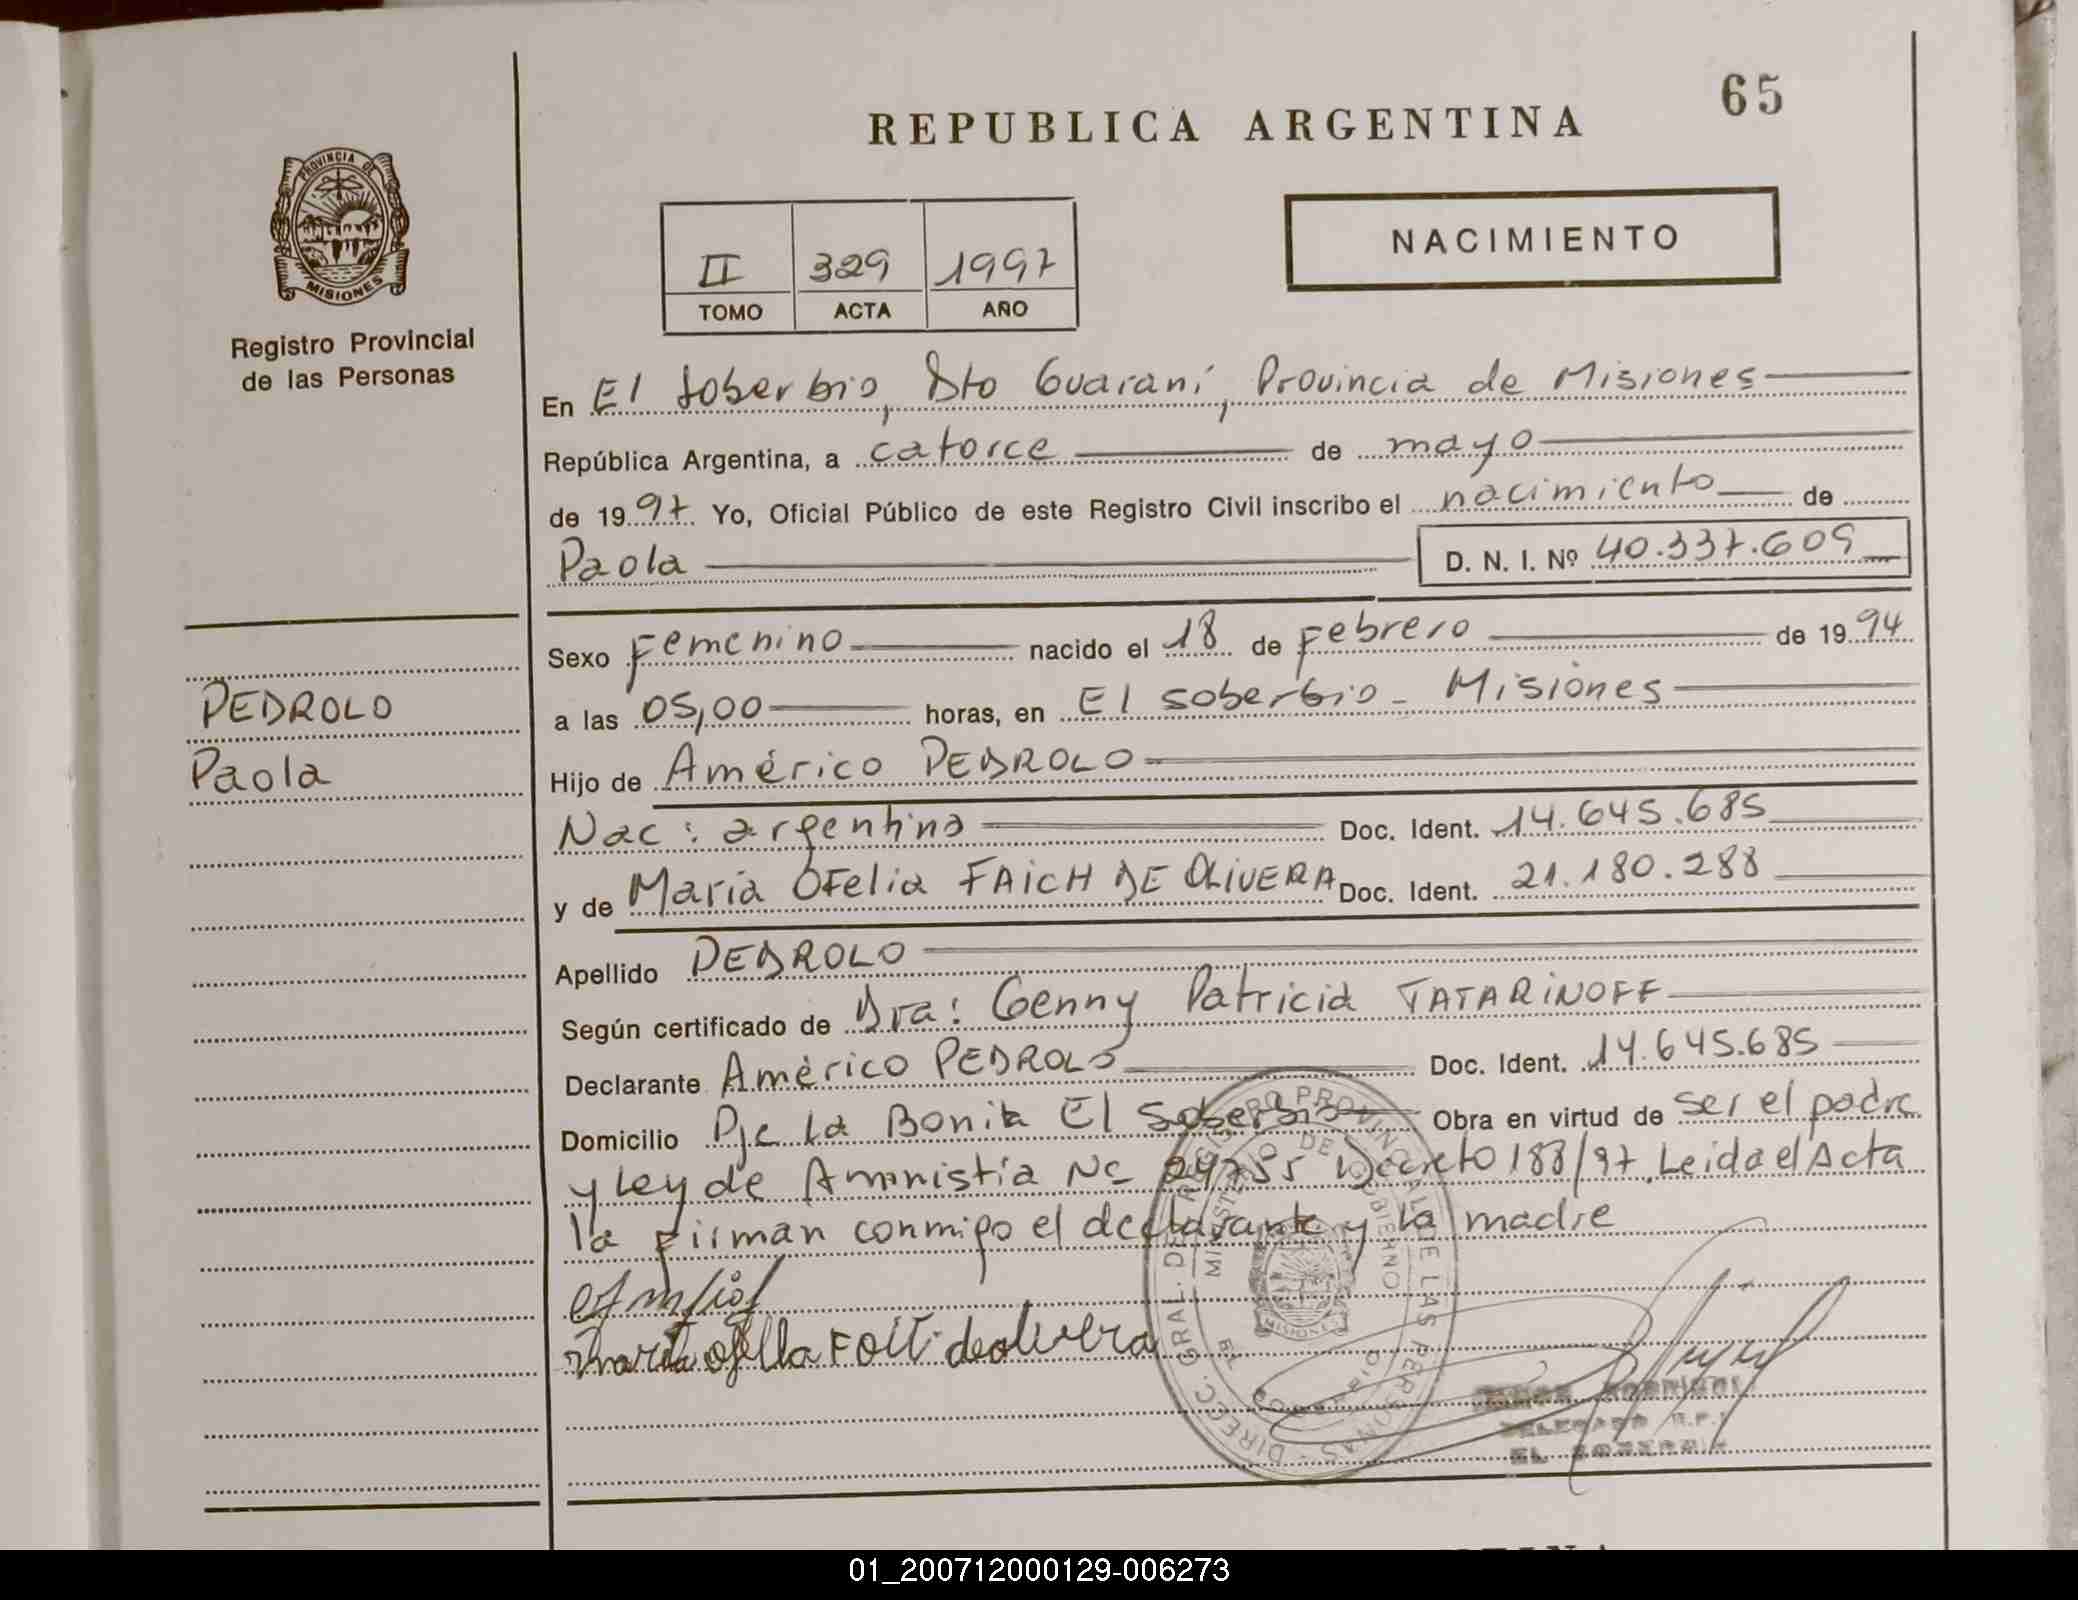 65
REPUBLICA ARGENTINA
PROVINCIA DE
MISIONES
Registro Provincial
de las Personas
NACIMIENTO
II 329 1997
TOMO ACTA AÑO
En El Soberbio, Dto Guaraní, Provincia de Misiones
República Argentina, a catorce de mayo
de 1997 Yo, Oficial Público de este Registro Civil inscribo el nacimiento de
Paola D. N. I. Nº 40.337.609
Sexo Femenino nacido el 18 de Febrero de 1994
PEDROLO
Paola
a las 05,00 horas, en El soberbio - Misiones
Hijo de Américo PEDROLO
Nac: argentina Doc. Ident. 14.645.685
y de María OFelia FAICH DE OLIVERA Doc. Ident. 21.180.288
Apellido PEDROLO
Según certificado de Dra: Genny Patricia TATARINOFF
Declarante Américo PEDROLO Doc. Ident. 14.645.685
Domicilio Pje La Bonita El Soberbio Obra en virtud de ser el padre
y Ley de Amnistía Nº 24755 Decreto 188/97 Leida el Acta
la Firman conmigo el declarante y la madre
DIRECC. GRAL. DE REGISTRO PROVINCIAL DE LAS PERSONAS
MINISTERIO DE GOBIERNO
MISIONES
EL SOBERBIO
DELEGADO R.P.
EL SOBERBIO
01_200712000129-006273